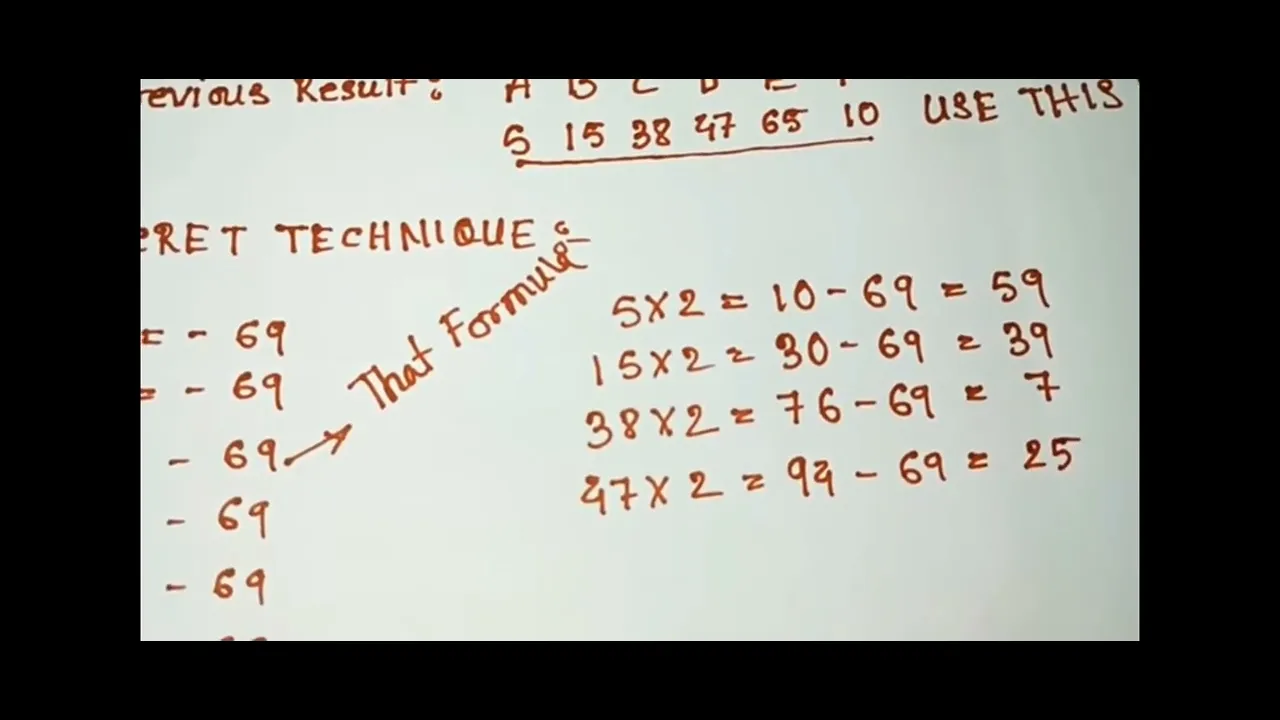 evious Result:
A B C D E
5 15 38 47 65 10 USE THIS
CRET TECHNIQUE :-
= - 69
= - 69
- 69 → That Formula
- 69
- 69
5×2 = 10 - 69 = 59
15×2 = 30 - 69 = 39
38×2 = 76 - 69 = 7
47×2 = 94 - 69 = 25